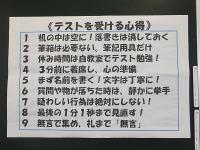 《テストを受ける心得》
1 机の中は空に！落書きは消しておく
2 筆箱は必要ない、筆記用具だけ
3 休み時間は自教室でテスト勉強！
4 3分前に着席し、心の準備
5 まず名前を書く！文字は丁寧に！
6 質問や物が落ちた時は、静かに挙手
7 疑わしい行為は絶対にしない！
8 最後の1分1秒まで見直す！
9 無言で集め、礼まで「無言」